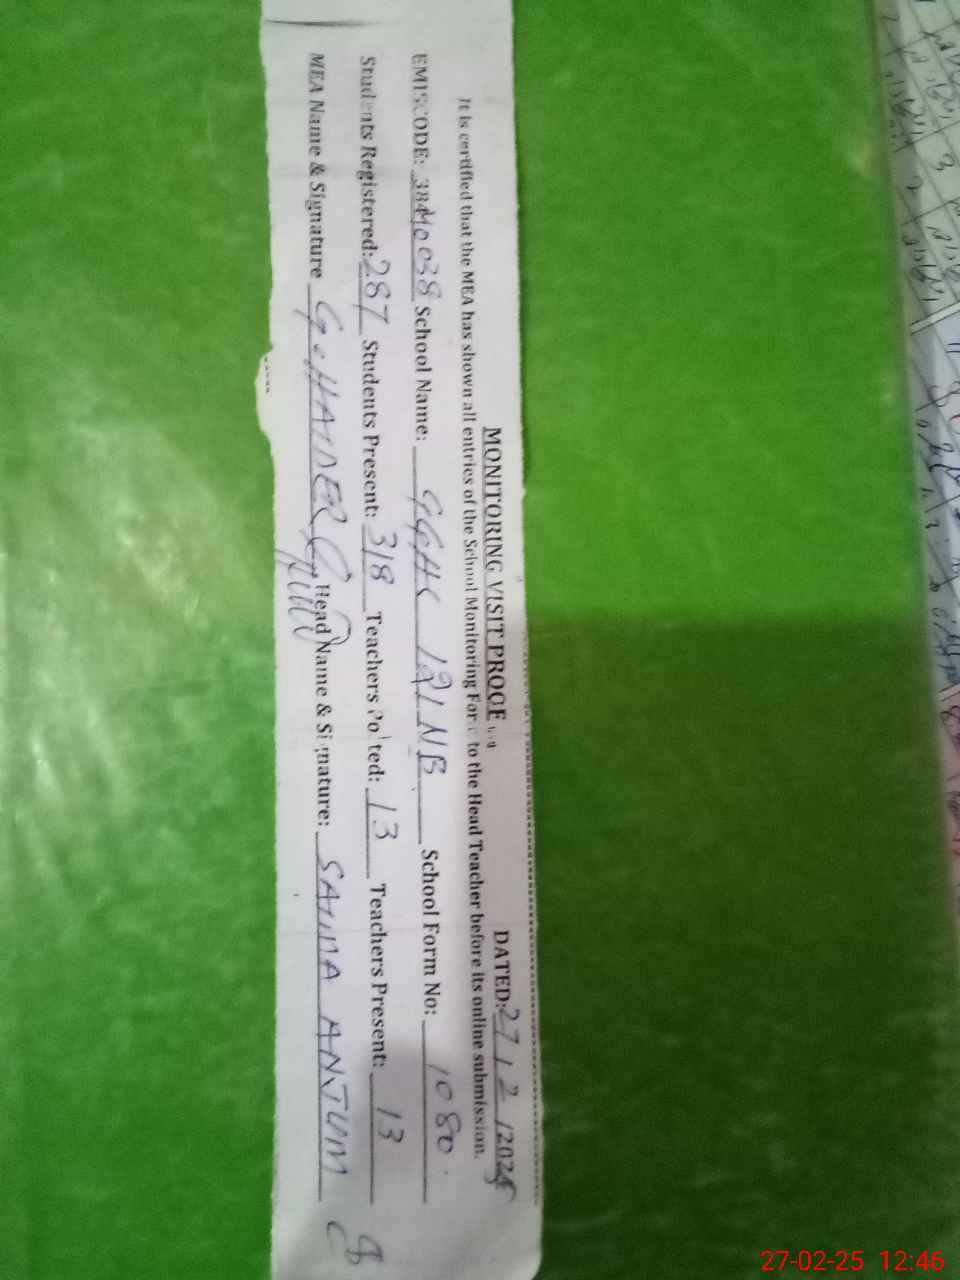 MONITORING VISIT PROOF DATED: 27/2/2025
It is certified that the MEA has shown all entries of the School Monitoring Form to the Head Teacher before its online submission.
EMISCODE: 38440038 School Name: GGHS 121NB School Form No: 1080.
Students Registered: 287 Students Present: 318 Teachers Posted: 13 Teachers Present: 13
MEA Name & Signature G. HAIDER Head Name & Signature: SAIMA ANJUM
27-02-25 12:46